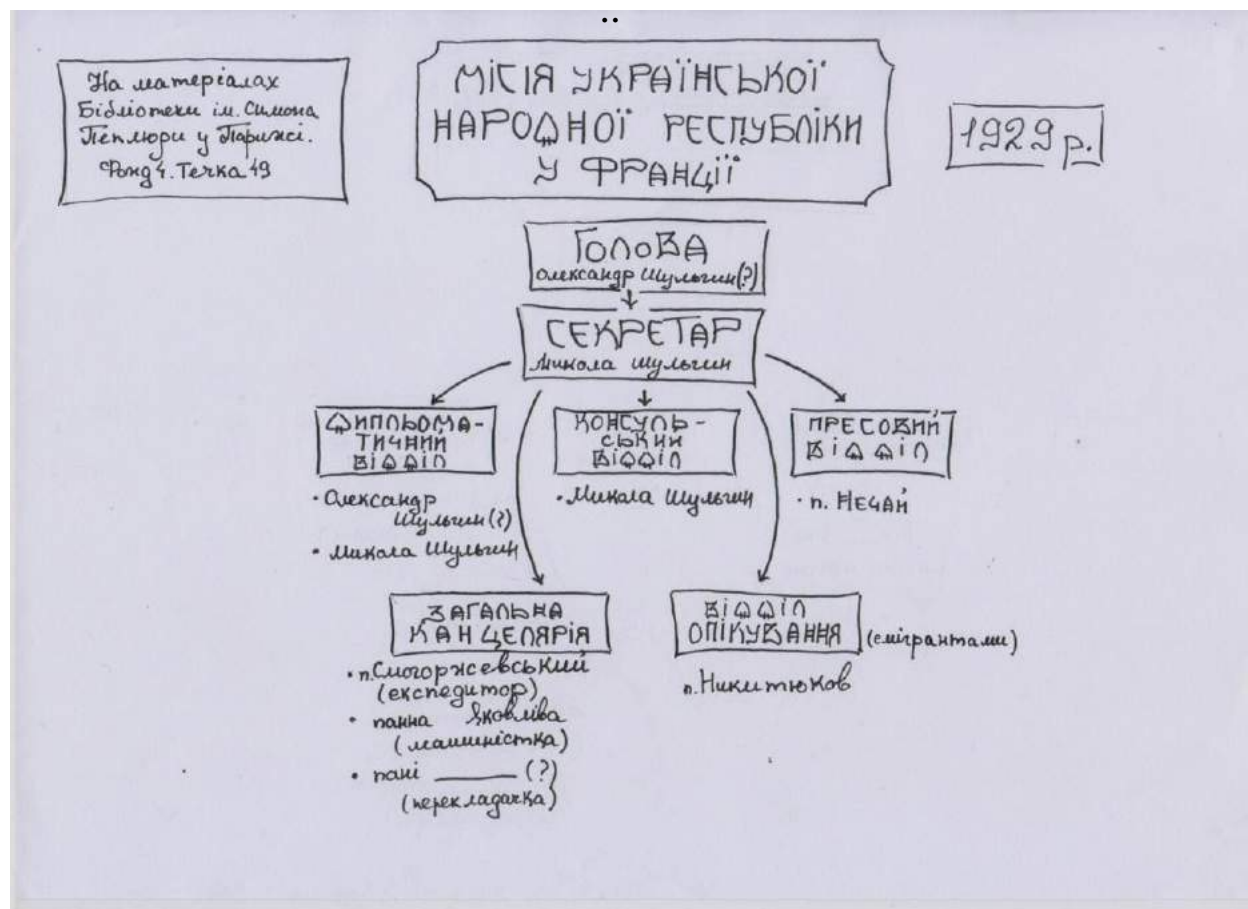 На матеріалах
Бібліотеки ім. Симона
Петлюри у Парижі.
Фонд 4. Течка 49
МІСІЯ УКРАЇНСЬКОЇ
НАРОДНОЇ РЕСПУБЛІКИ
У ФРАНЦІЇ
1929 р.
ГОЛОВА
Олександр Шульгин(?)
СЕКРЕТАР
Микола Шульгин
ДИПЛЬОМА-
ТИЧНИЙ
ВІДДІЛ
• Олександр
Шульгин(?)
• Микола Шульгин
КОНСУЛЬ-
СЬКИЙ
ВІДДІЛ
• Микола Шульгин
ПРЕСОВИЙ
ВІДДІЛ
• п. Нечай
ЗАГАЛЬНА
КАНЦЕЛЯРІЯ
• п. Смогоржевський
(експедитор)
• панна Яковліва
(машиністка)
• пані ______ (?)
(перекладачка)
ВІДДІЛ
ОПІКУВАННЯ
(емігрантами)
п. Никитюков